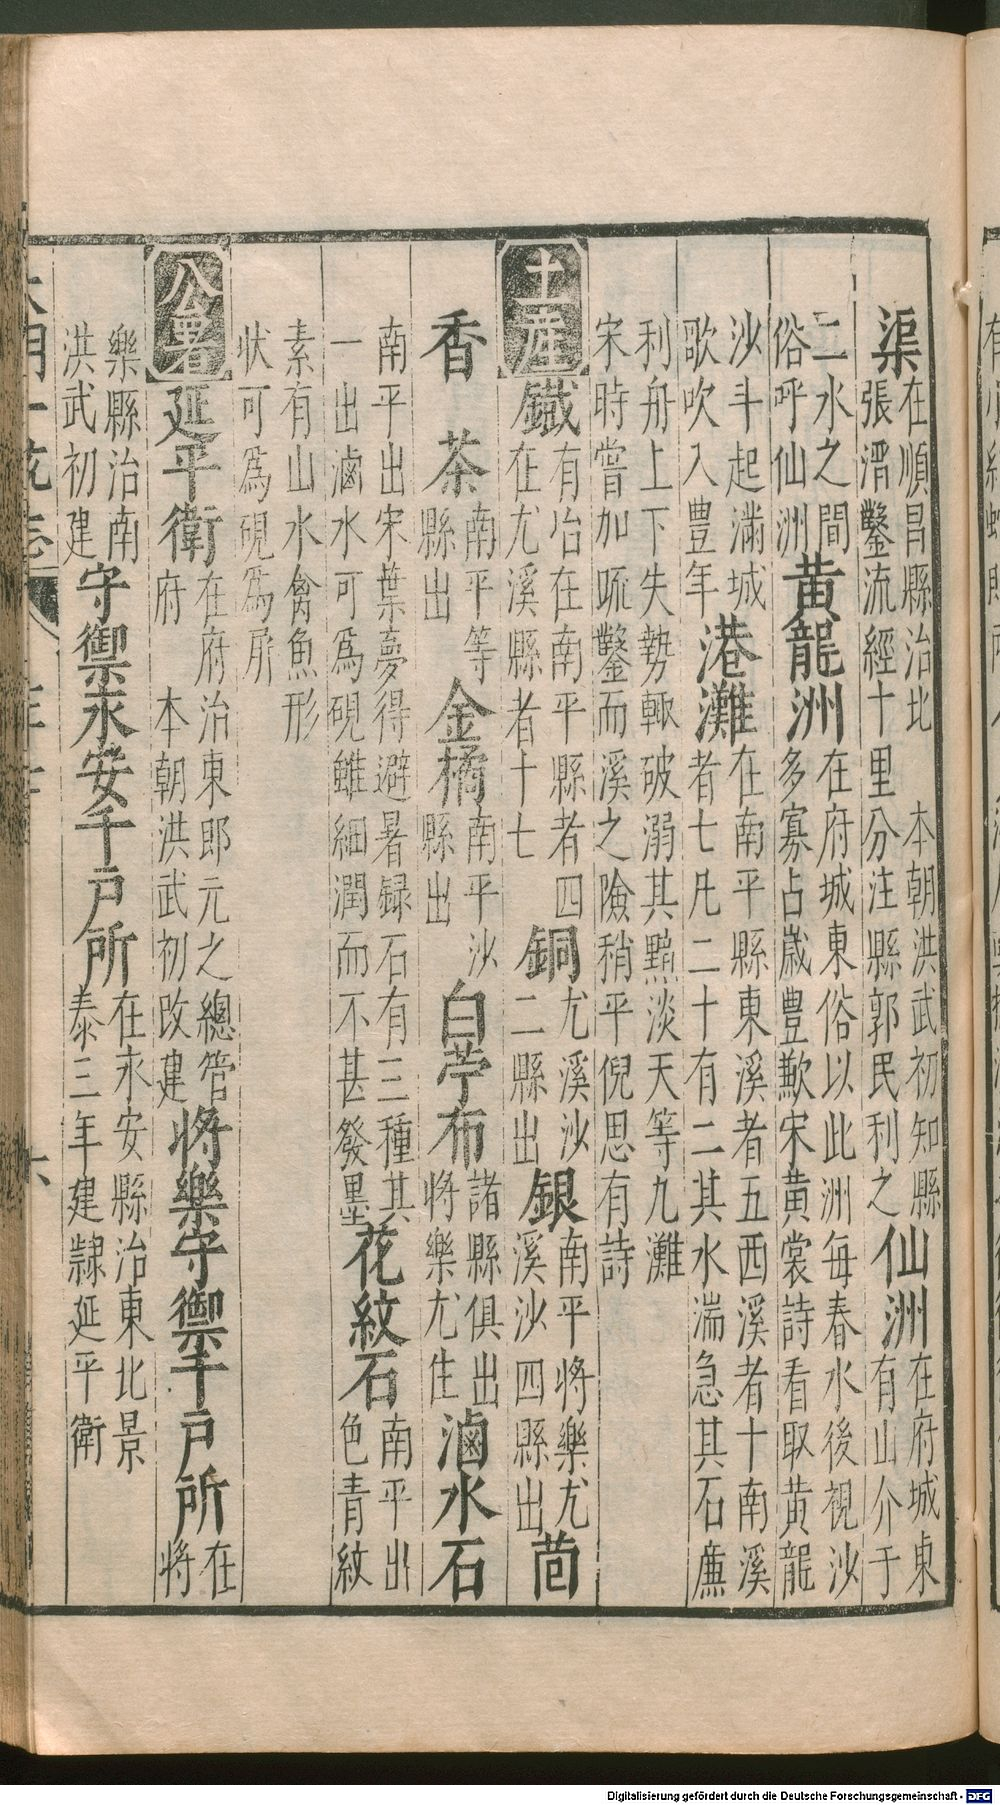 渠
在順昌縣治北 本朝洪武初知縣
張渭鑿流經十里分注縣郭民利之
仙洲
在府城東
有山介于
二水之間
俗呼仙洲
黄龍洲
在府城東俗以此洲每春水後視沙
多寡占歲豐歉宋黄裳詩看取黄龍
沙斗起滿城
歌吹入豐年
港灘
在南平縣東溪者五西溪者十南溪
者七凡二十有二其水湍急其石廉
利舟上下失勢輙破溺其黯淡天等九灘
宋時嘗加䟽鑿而溪之險稍平倪思有詩
土産
鐵
有冶在南平縣者四
在尤溪縣者十七
銅
尤溪沙
二縣出
銀
南平将樂尤
溪沙四縣出
茴
香
茶
南平等
縣出
金橘
南平 沙
縣出
白苧布
諸縣俱出
将樂尤佳
滷水石
南平出宋葉夢得避暑録石有三種其
一出滷水可爲硯雖細潤而不甚發墨
花紋石
南平出
色青紋
素有山水禽魚形
状可爲硯爲屏
公署
延平衛
在府治東郎元之總管
府 本朝洪武初改建
将樂守御千戸所
在
将
樂縣治南
洪武初建
守禦永安千戸所
在永安縣治東北景
泰三年建隸延平衛
大明一統志
六
Digitalisierung gefördert durch die Deutsche Forschungsgemeinschaft - DFG